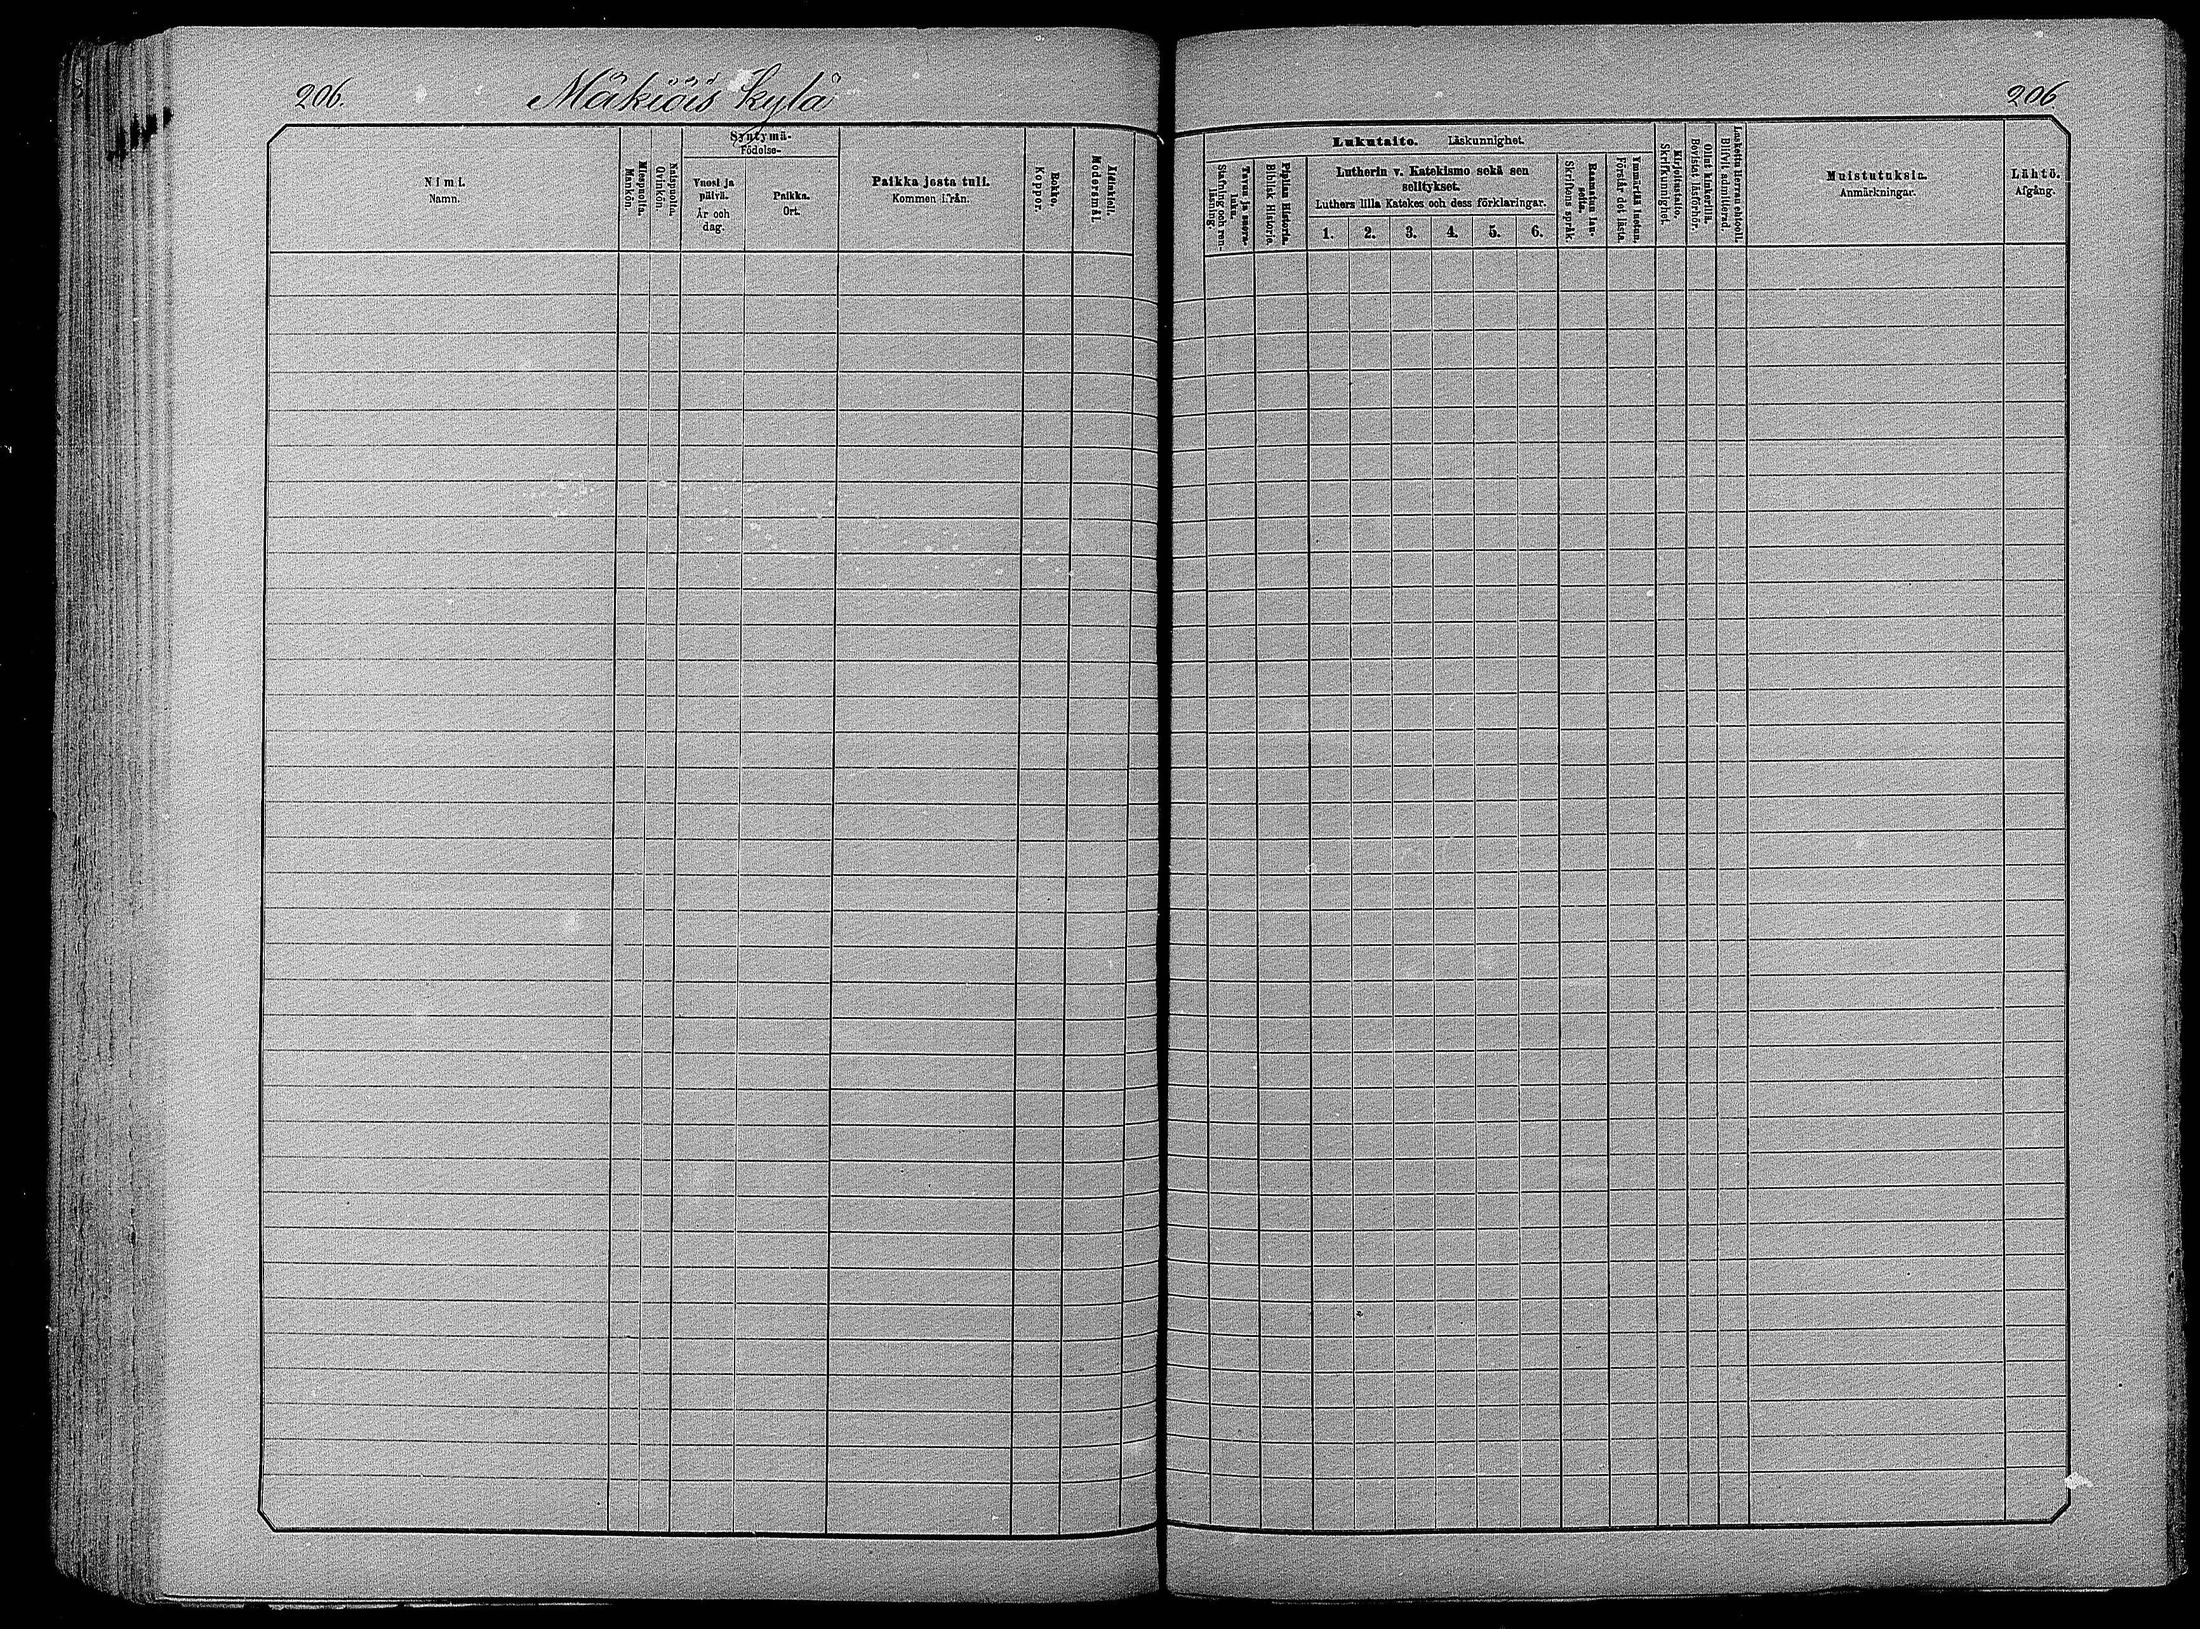 206.
Mäkiöis kylä
206
Nimi.
Namn.
Miespuolia.
Mankön.
Naispuolia.
Qvinkön.
Syntymä-
Födelse-
Vuosi ja
päivä.
År och
dag.
Paikka.
Ort.
Paikka josta tuli.
Kommen ifrån.
Rokko.
Koppor.
Äidinkieli.
Modersmål.
Lukutaito. Läskunnighet.
Tavaa ja suora-
luku.
Stafning och ren-
läsning.
Piplian Historia.
Biblisk Historie.
Lutherin v. Katekismo sekä sen
selitykset.
Luthers lilla Katekes och dess förklaringar.
1. 2. 3. 4. 5. 6.
Raamatun lau-
seita.
Skriftens språk.
Ymmärtää luetun.
Förstår det lästa.
Kirjoitustaito.
Skrifkunnighet.
Ollut kinkerillä.
Bevistat läsförhör.
Laskettu Herran ehtoolI.
Blifvit admitterad.
Muistutuksia.
Anmärkningar.
Lähtö.
Afgång.